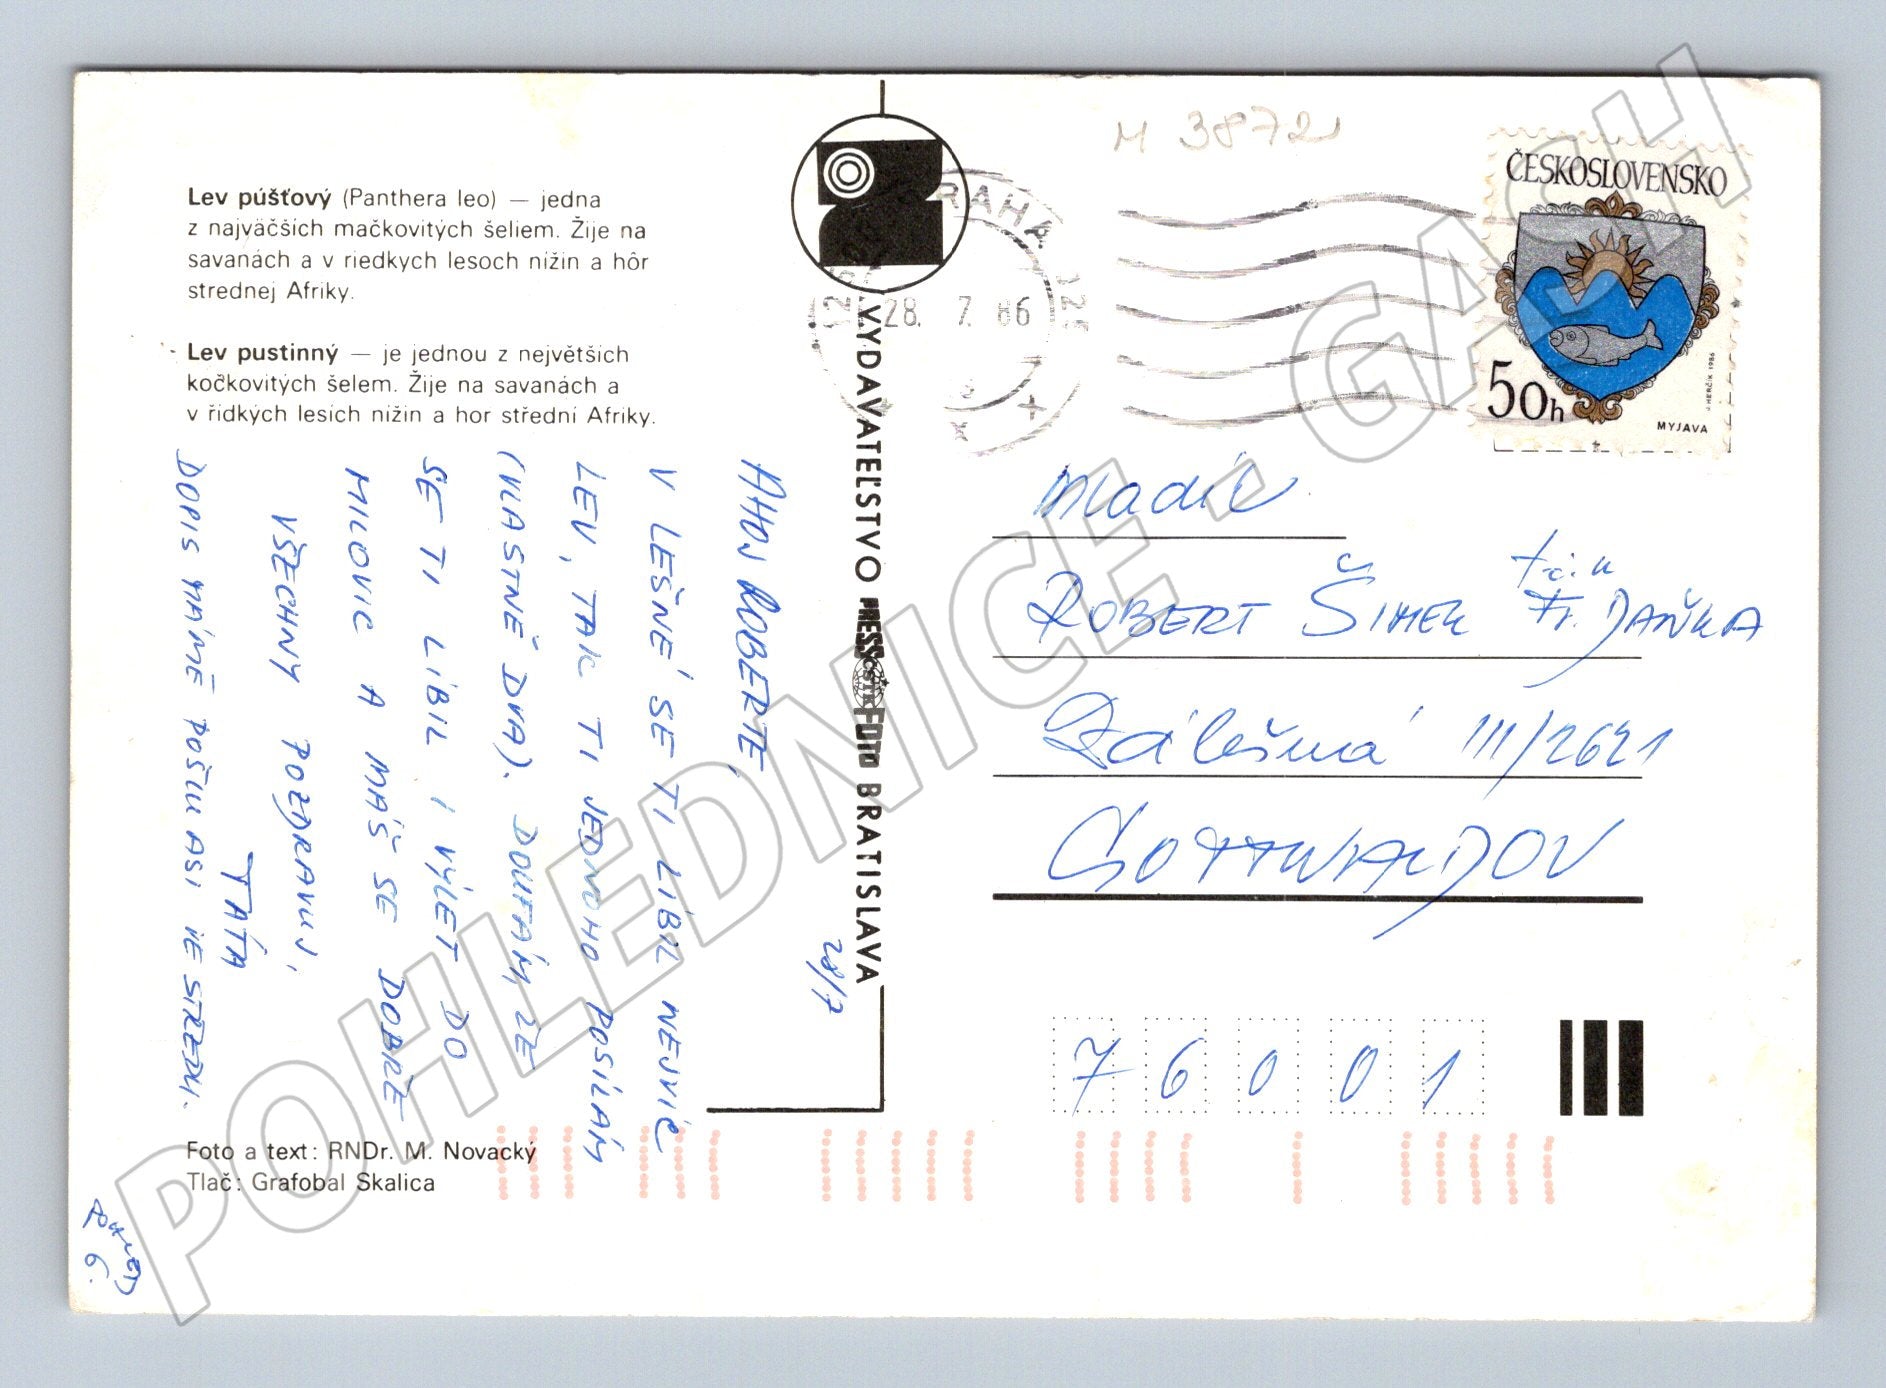 Lev púšťový (Panthera leo) — jedna
z najväčších mačkovitých šeliem. Žije na
savanách a v riedkych lesoch nížin a hôr
strednej Afriky.
Lev pustinný — je jednou z největších
kočkovitých šelem. Žije na savanách a
v řídkých lesích nížin a hor střední Afriky.
28/7
AHOJ ROBERTE,
V LEŠNÉ SE TI LÍBIL NEJVÍC
LEV, TAK TI JEDNOHO POSÍLÁM
(VLASTNĚ DVA). DOUFÁM, ŽE
SE TI LÍBIL I VÝLET DO
MILOVIC A MÁŠ SE DOBŘE
VŠECHNY POZDRAVUJ,
TÁTA
DOPIS MÁMĚ POŠLU ASI VE STŘEDU.
Foto a text: RNDr. M. Novacký
Tlač: Grafobal Skalica
VYDAVATEĽSTVO PRESSFOTO BRATISLAVA
ČSTK
M 38721
PRAHA 12
28. 7. 86
ČESKOSLOVENSKO
50h
MYJAVA
J. HERČÍK 1986
Mladík
ROBERT ŠIMEK
DAŇKA
Zálešná III/2621
GOTTWALDOV
76001
POHLEDNICE - GASH